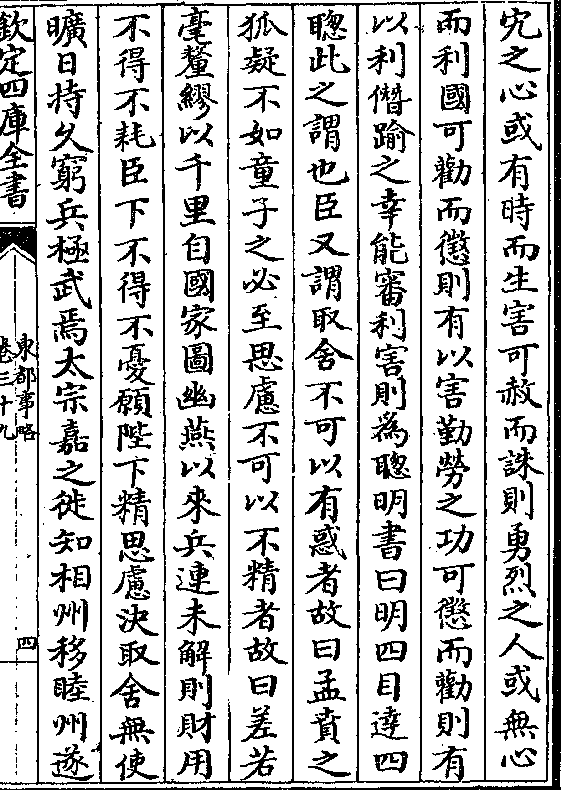 宄之心或有時而生害可赦而誅則勇烈之人或無心
而利國可勸而懲則有以害勤勞之功可懲而勸則有
以利僭踰之幸能審利害則為聰明書曰明四目達四
聰此之謂也臣又謂取舍不可以有惑者故曰孟賁之
狐疑不如童子之必至思慮不可以不精者故曰差若
毫釐繆以千里自國家圖幽燕以來兵連未解則財用
不得不耗臣下不得不憂願陛下精思慮決取舍無使
曠日持久窮兵極武焉太宗嘉之徙知相州移睦州遂
欽定四庫全書
東都事略
卷三十九
四